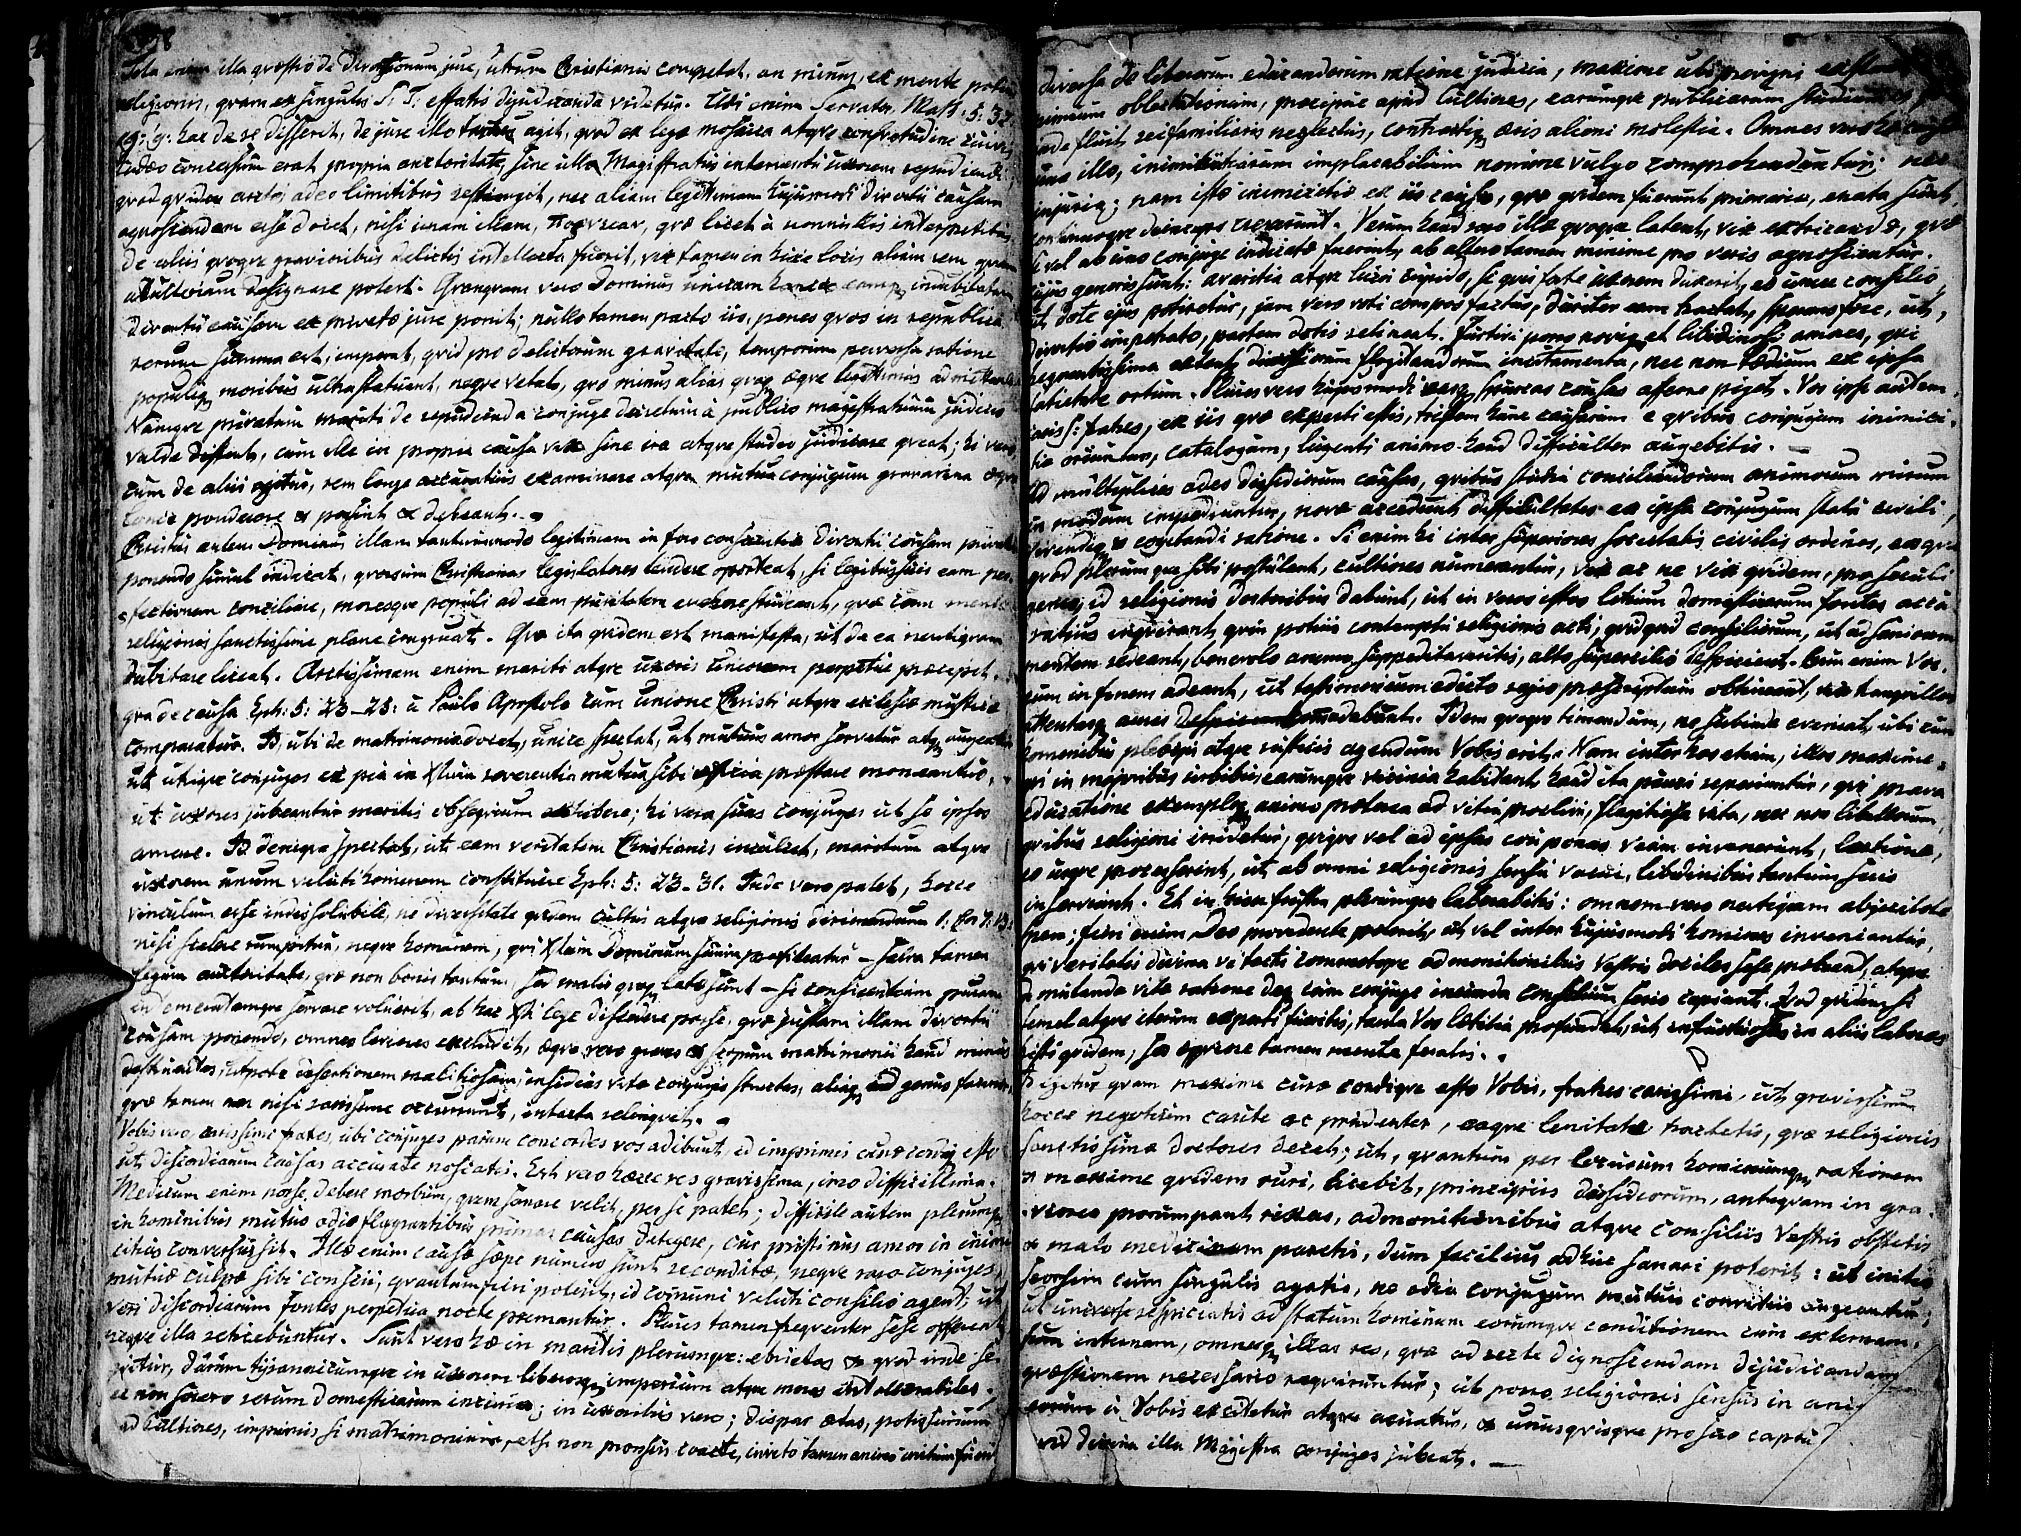 Tota enim illa qvæstio de divortiorum jure, utrum Christianis competat, an minus, ex mente potius
religionis, qvam ex singulis S: S: effatis dijudicanda videtur. Ubi enim Servator Matth: 5: 32
19: 9: hac de re disserit, de jure illo tantum agit, qvod ex lege mosaica atqve consvetudine cuivis
Judæo concessum erat propria auctoritate, sine ulla Magistratus interventu uxorem repudiandi,
qvod qvidem arctis adeo limitibus restringit, nec aliam legitimam hujusmodi divortii causam
agnoscendam esse docet, nisi unam illam, πορνειαν, qvæ licet à nonnullis interpretibus
de aliis qvoqve gravioribus delictis intellecta fuerit, vix tamen in hisce locis aliam rem qvam
adulterium designare potest. Qvanqvam vero Dominus unicam hance eamq indubitatam
divortii causam ex privato jure ponit; nullo tamen pacto iis, penes qvos in republica
rerum summa est, imperat, qvid pro delictorum gravitati, temporum perversa ratione
populiq moribus ultra statuant, neqve vetat, qvo minus alias qvoq æqve legitimas admittant
Namqve privatum mariti de repudianda conjuge decretum à publico magistratuum judicio
valde differt, cum ille in propria causa vix sine ira atqve studio judicare qveat; hi vero,
cum de aliis agitur, rem longe accuratius examinare atqve mutua conjugum gravamina æqva
lance ponderare & possint & debeant. -
Christus autem Dominus illam tantummodo legitimam in foro conscientiæ divortii causam privatis
ponendo simul indicat, qvorsum Christianos legislatores tendere oporteat, si legibus suis eam per-
fectionem conciliare, moresqve populi ad eam puritatem evehere studeant, qvæ cum mente
religionis sanctissimæ plane congruat. Qvæ ita qvidem est manifesta, ut de ea neutiqvam
dubitare liceat. Arctissimam enim mariti atqve uxoris unionem perpetuo præcepit,
qva de causa Eph: 5: 23-25: à Paulo Apostolo cum unione Christi atqve ecclesiæ mysticæ
comparatur. Is, ubi de matrimonio docet, unice spectat, ut mutuus amor servetur atq augeatur
ut utriqve conjuges ex pia in Xstum reverentia mutua sibi officia præstare moneantur,
ut uxores jubeantur maritis obseqvium exhibere; hi vero suas conjuges ut se ipsos
amare. Is deniqve spectat, ut eam veritatem Christianis inculcet, maritum atqve
uxorem unum veluti hominem constituere Eph: 5: 23-31. Inde vero patet, hocce
vinculum esse indissolubile, ne diversitate qvidem cultus atqve religionis dirimendum 1. Cor 7: 13:
nisi scelere rumpitur, neqve hominem, qvi Xstum Dominum suum profiteatur - salva tamen
legum auctoritate, qvæ non bonis tantum, sed malis qvoq latæ sunt - si conscientiam puram
inemendatamqve servare voluerit, ab hac Xsti lege discedere posse, qvæ justam illam divortii
causam ponendo, omnes leviores excludit, æqve vero graves & scopum matrimonii haud minus
destruentes, utpote desertionem malitiosam, insidias vitæ conjugis structas, aliaq id genus facinora,
qvæ tamen non nisi rarissime occurrunt, intacta relinqvit. -
Vobis vero, carissimi fratres, ubi conjuges parum concordes vos adibunt, id imprimis curæ cordiq esto
ut discordiarum causas accurate noscatis. Est vero hæcce res gravissima, imo difficillima.
Medicum enim nosse debere morbum, qvem sanare velit, per se patet; difficile autem plerumq
in hominibus mutuo odio flagrantibus primas causas detegere, cur pristinus amor in inimi-
citias conversus sit. Illæ enim causæ sæpe numero sunt reconditæ, neqve raro conjuges,
mutuæ culpæ sibi conscii, qvantum fieri potest, id communi veluti consilio agent, ut
veri discordiarum fontes perpetua nocte premantur. Plures tamen freqventer sese offerent
neqve illa reticebuntur. Sunt vero hæ in maritis plerumqve: ebrietas & qvod inde se-
qvitur, durum tyrannicumqve in uxorem liberosq imperium atqve mores intolerabiles,
ec non severo rerum domesticarum incuria; in uxoribus vero; dispar ætas, potissimum
ad cultiores, imprimis si matrimonium, etsi non prorsus coacte, invito tamen animo initum fuerit
diversa de liberorum educandorum ratione judicia, maxime ubi privigni
nimium oblectationum, præcipue apud cultiores, earumqve publicarum studium,
unde fluit rei familiaris neglectus, contractiq æris alieni molestia. Omnes vero hæ causæ
uno illo, inimicitiarum implacabilium nomine vulgo comprehenduntur: nec
injuria; nam istæ inimicitiæ ex iis causis, qvæ qvidem fuerunt primariæ, enata sunt,
continuoqve deinceps creverunt. Verum haud raro illæ qvoqve latent, vix extricandæ, qvæ
si vel ab uno conjuge indicatæ fuerint, ab altero tamen minime pro veris agnoscuntur.
Cujus generis sunt: avaritia atqve lucri cupido, si qvis forte uxorem duxerit, eo unice consilio,
ut dote ejus potiretur, jam vero voti compos factus, duriter eam tractat, sperans fore, ut,
divortio impetrato, partem dotis retineat. Furtivi porro noviq et libidinosi amores, qvi
freqventissima extent divortiorum flagitandorum incitamenta, nec non tædium ex ipsa
satietate ortum. Plures vero hujusmodi easq spurcas causas afferre piget. Vos ipsi autem,
caris: fratres, ex iis qvæ experti estis, tristem hanc causarum e qvibus conjugum inimici-
tiæ oriuntur, catalogum, lugenti animo haud difficulter augebitis. -
Ad multiplices adeo dissidiorum causas, qvibus studia conciliandorum animorum mirum
in modum impediuntur, novæ accedunt difficultates ex ipso conjugum statu civili,
vivendiq & cogitandi ratione. Si enim hi inter superiores societatis civilis ordines, easqve
qvod plerumqve sibi postulant, cultiores numerantur, vix ac ne vix qvidem, pro seculi
genio, id religionis doctoribus dabunt, ut in veros istos litium domesticarum fontes accu-
ratius inqvirant, qvin potius contemptu religionis acti, qvidqvid consiliorum, ut ad saniorem
mentem redeant, benevolo animo suppeditaveritis, alto supercilio despicient. Cum enim Vos
eum in finem adeant, ut testimonium edicto regio præscriptum obtineant, vix tranqvillas
attentasq aures dabunt. Idem qvoqve timendum, ne subinde eveniat, ubi cum
hominibus plebejis atqve rusticis agendum Vobis erit. Nam inter hos etiam, illos maxime
qvi in majoribus urbibus, earumqve vicinia habitant haud ita pauci reperiuntur, qvi prava
educatione exemploq animo protenso ad vitia proclivi, flagitiosa vita, nec non libellorum,
qvibus religioni irridetur, qviqve vel ad ipsas cauponas viam invenerunt, lectione,
eo usqve processerint, ut ab omni religionis sensu vacui, libidinibus tantum suis
inserviant. Et in hisce frustra plerumqve laborabitis: omnem vero neutiqvam abjicite
spem; fieri enim Deo providente poterit, ut vel inter hujusmodi homines inveniantur,
qvi veritatis divinæ vi tacti commotiqve admonitionibus Vestris dociles sese præbeant, atqve
de mutanda vitæ ratione deq cum conjuge ineunda concordia serio capiant. Qvod qvidem si
semel atqve iterum experti fueritis, tanta Vos lætitia profundet, ut infructuosos in aliis labores
tristi qvidem, sed æqviore tamen mente feratis. -
Igitur qvam maxime curæ cordiqve esto Vobis, fratres carissimi, ut gravissimum
hocce negotium caute ac prudenter, eaqve lenitate tractetis, qvæ religionis
sanctissimæ doctores decet; ut, qvantum per locorum hominumq rationem
& maxime qvidem ruri, licebit, principiis dissidiorum, anteqvam in gra-
viores prorumpant rixas, admonitionibus atqve consiliis Vestris obstetis
& malo medicinam paretis, dum facilius adhuc sanari poterit: ut initio
seorsim cum singulis agatis, ne odia conjugum mutuis conviciis augeantur;
ut universe respiciatis ad statum hominum eorumqve conditionem cum externam,
tum internam, omnesq illas res, qvæ ad recte dignoscendam dijudicandamq
qvæstionem necessario reqviruntur; ut porro religionis sensus in ani-
eorum à Vobis excitetur atqve acuatur, & unusqvisqve pro suo captu
qvid divina illa Magistra conjuges jubeat. -